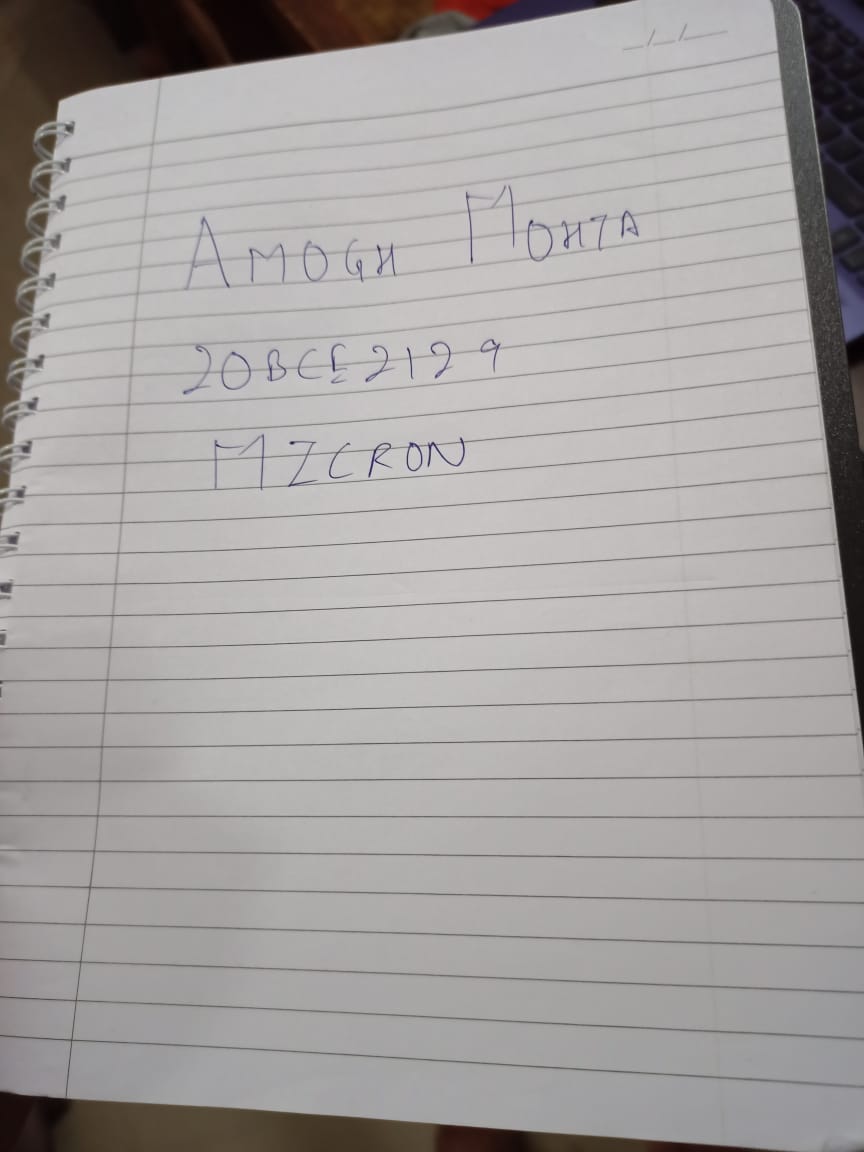 AMOGH MOHTA
20BCE2129
MICRON